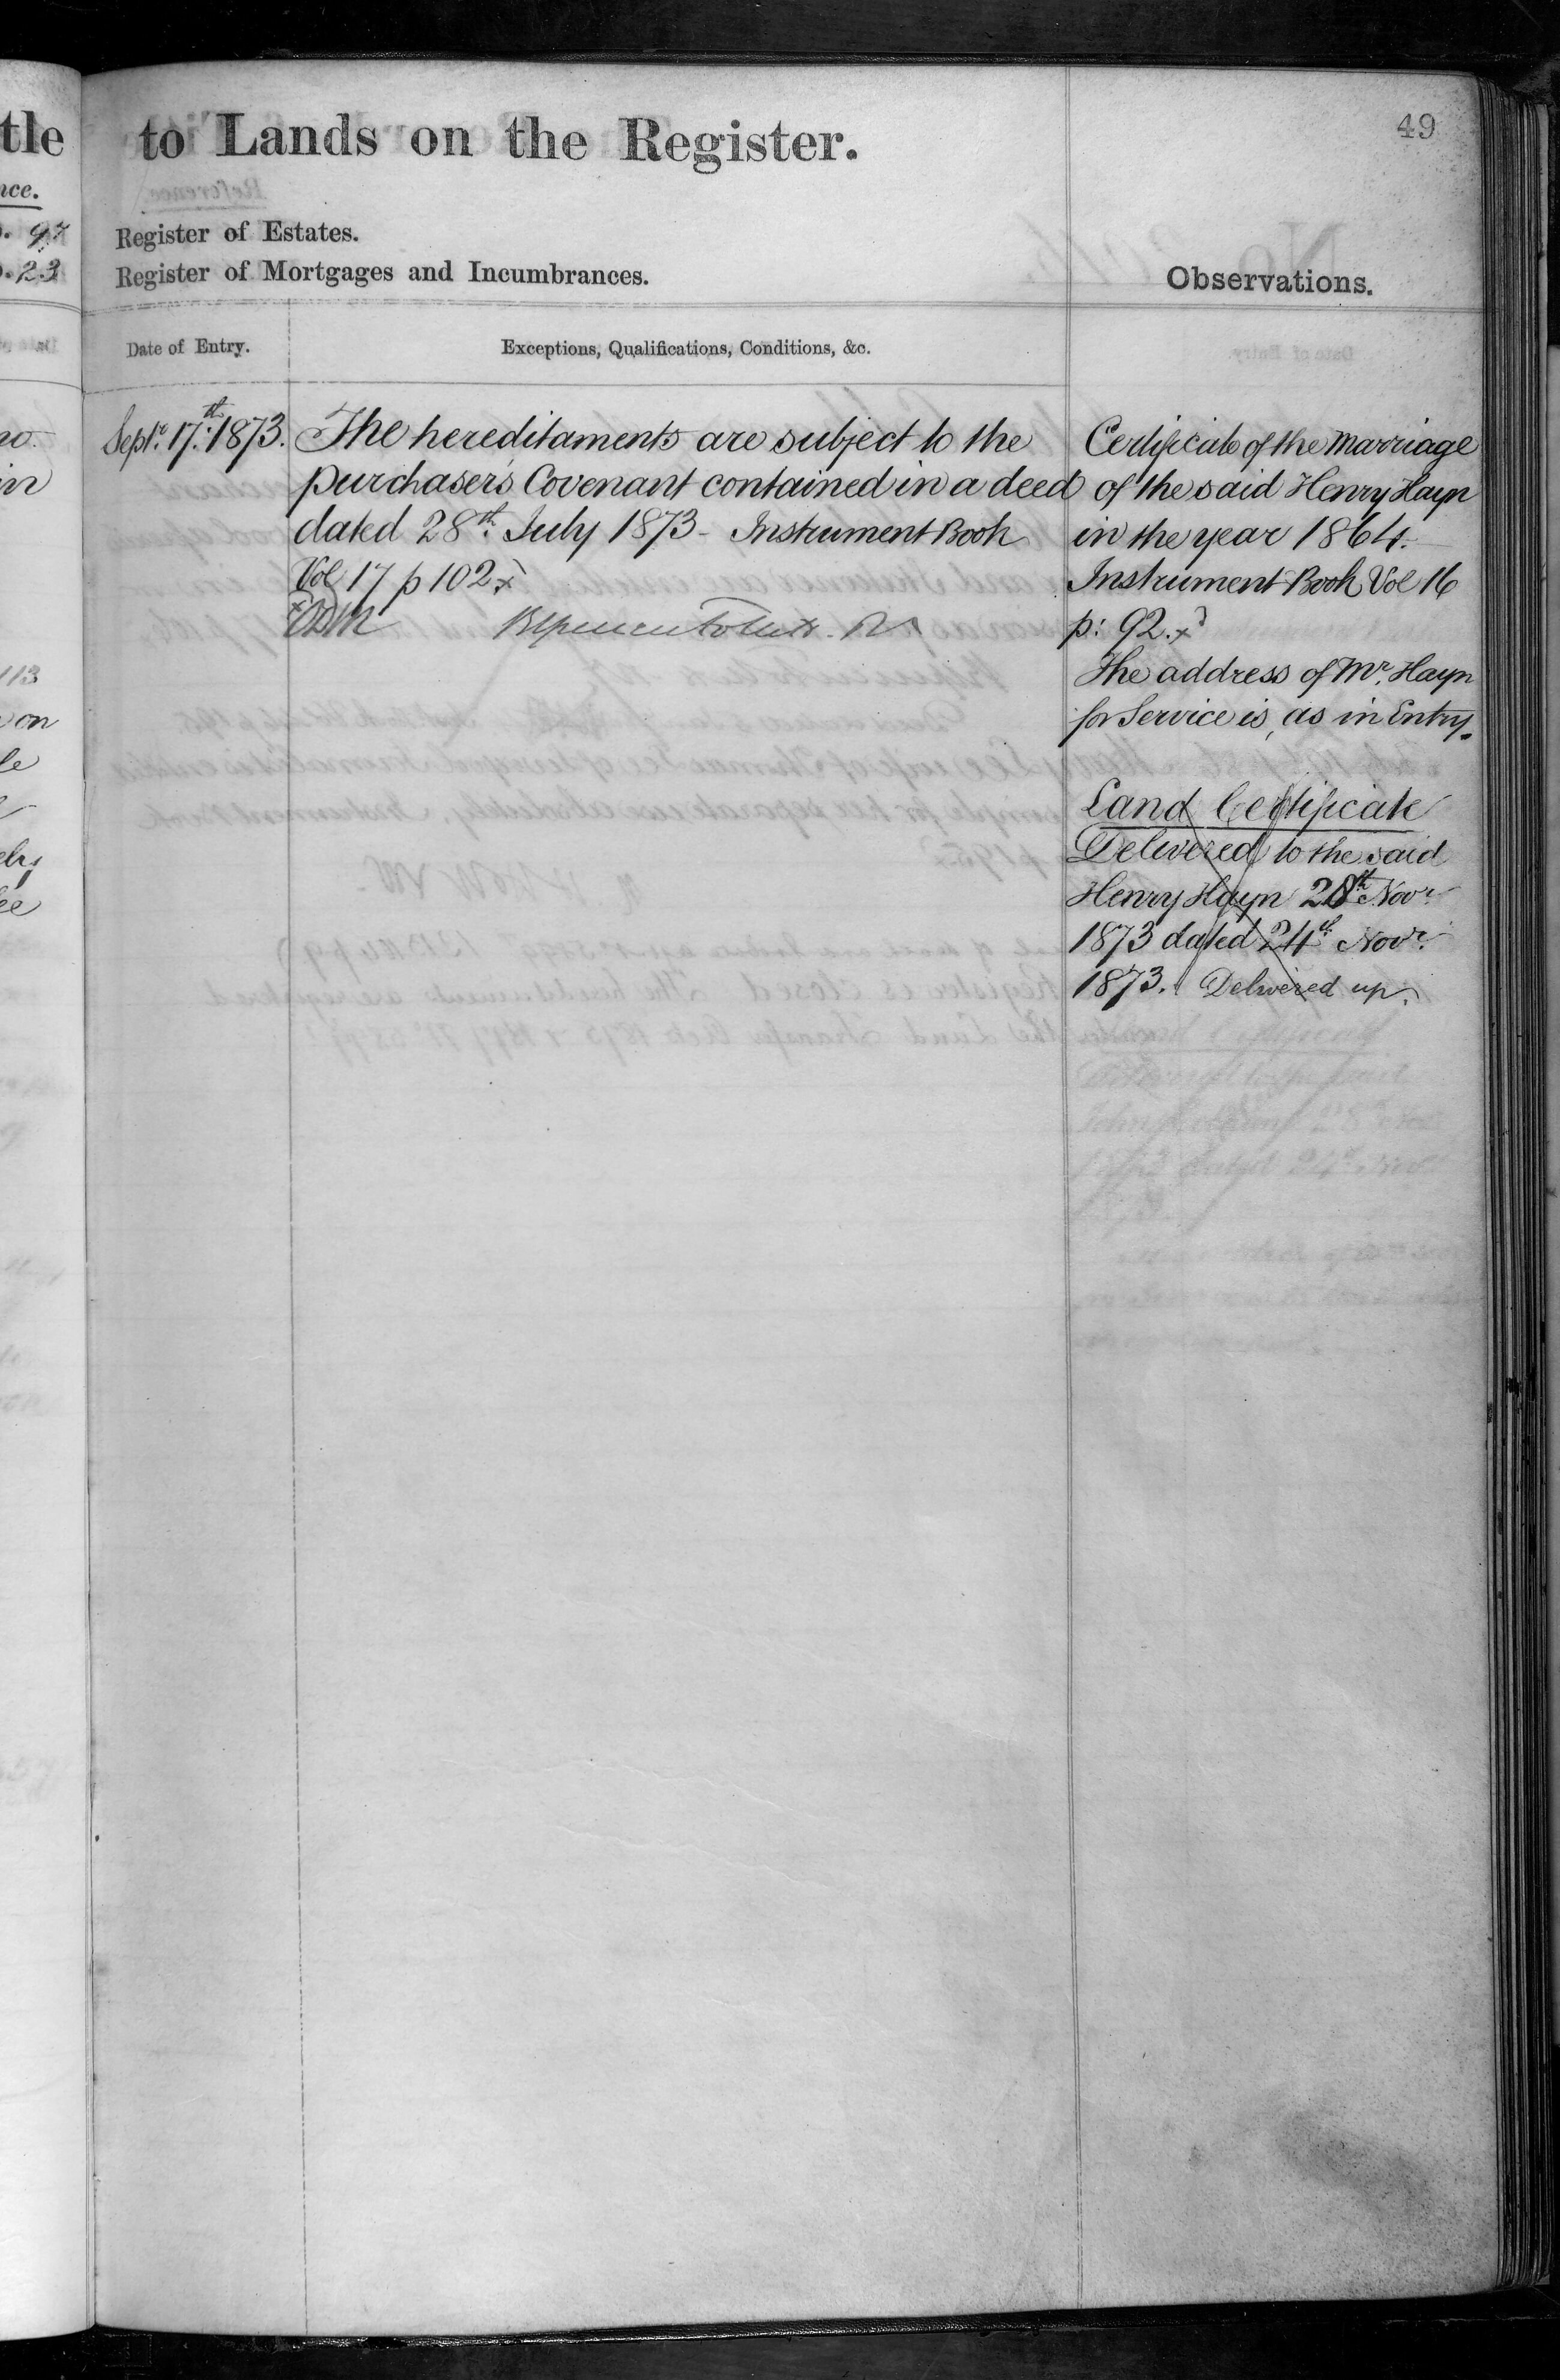 tle
nce.
. 97
.23
in
113
on
le
ee
to Lands on the Register.
49
Register of Estates.
Register of Mortgages and Incumbrances.
Observations.
Date of Entry.
Exceptions, Qualifications, Conditions, &c.
Septr. 17th. 1873.
The hereditaments are subject to the
purchaser's Covenant contained in a deed
dated 28th July 1873 - Instrument Book
Vol 17 p 102 x
Certificate of the marriage
of the said Henry Hayn
in the year 1864.
Instrument Book Vol 16
p: 92. x
The address of Mr. Hayn
for Service is, as in Entry.
Land Certificate
Delivered to the said
Henry Hayn 28th Novr.
1873 dated 24th Novr.
1873. Delivered up.